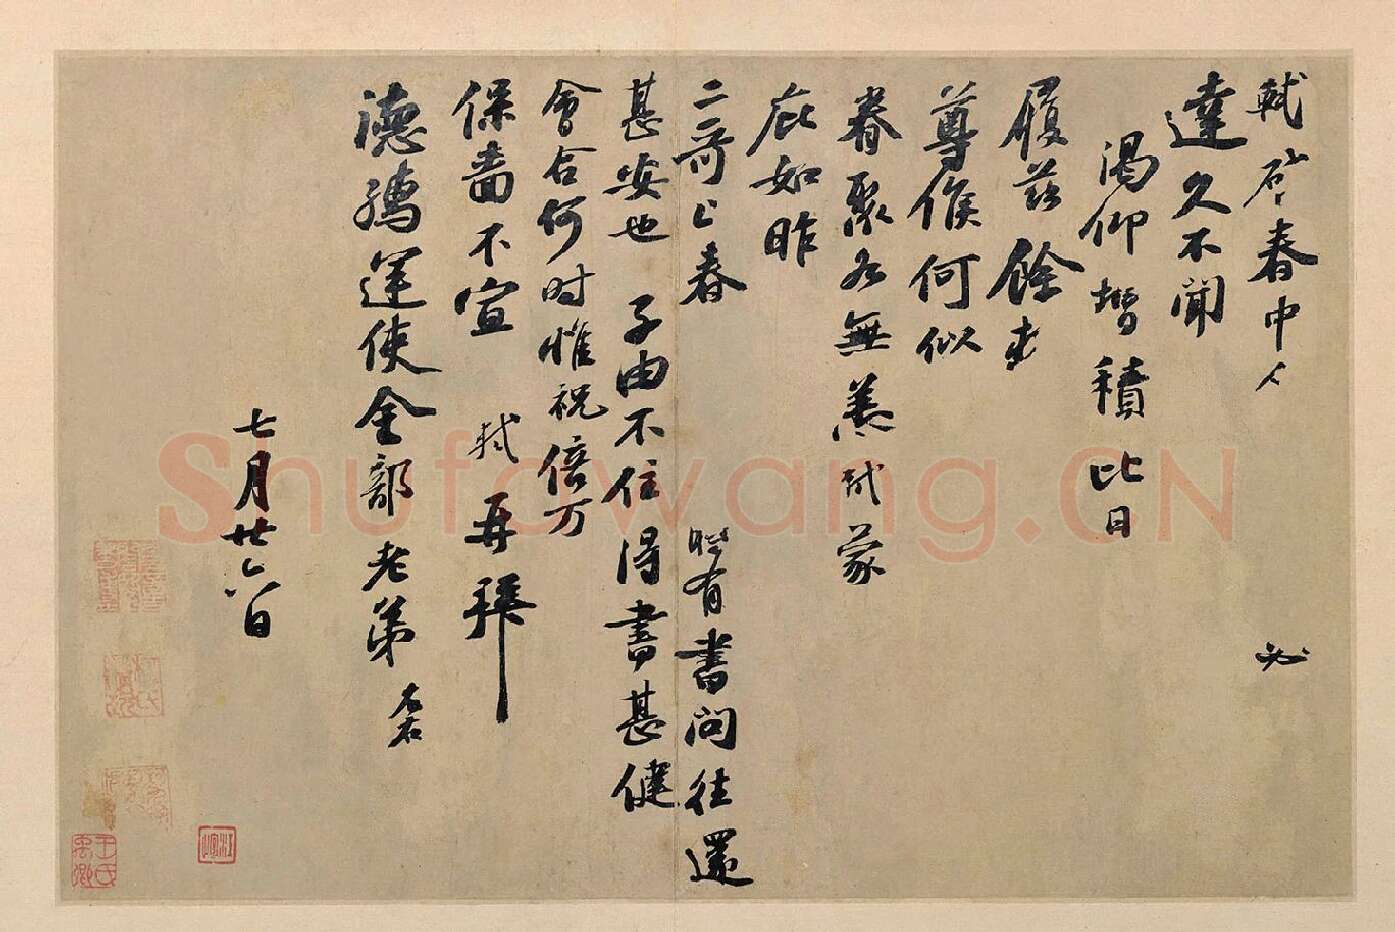 軾啓春中人必
達久不聞
渴仰增積比日
履茲餘
尊候何似
眷聚各無恙軾蒙
庇如昨
二哥上春時有書問往還
甚安也子由不住得書甚健
會合何時惟祝倍万
保嗇不宣軾再拜
德孺運使金部老弟左右
七月廿六日
Shufawang.CN